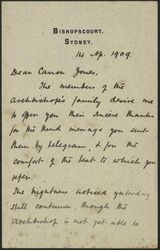 BISHOPSCOURT.
SYDNEY.
14 Ap. 1909.
Dear Canon Jones,
The members of the
Archbishop's family desire me
to offer you their sincere thanks
for the kind message you sent
them by telegram, & for the
comfort of the text to which you
refer.
The brightness noticed yesterday
still continues, though the
Archbishop is not yet able to